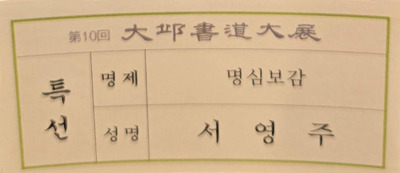 第10回 大邱書道大展
특선
명제 명심보감
성명 서영주